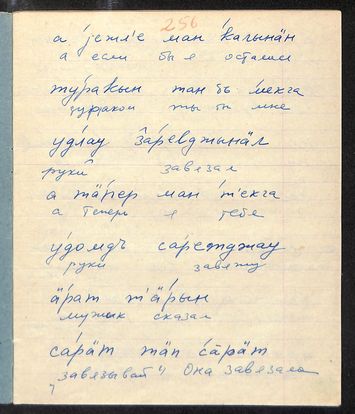 256
а jежл'е ман калынӓн
а если бы я остался
тураkын тан бъ мекга
дураком ты бы мне
удлау за̄ревджынӓл
руки завязал
а тӓпер ман т'екга
а теперь я тебе
удомдъ саренджау
руки завяжу
ӓрат т'ӓрын
мужик сказал
сарӓт тӓп са̄рӓт
"завязывай" Она завязала